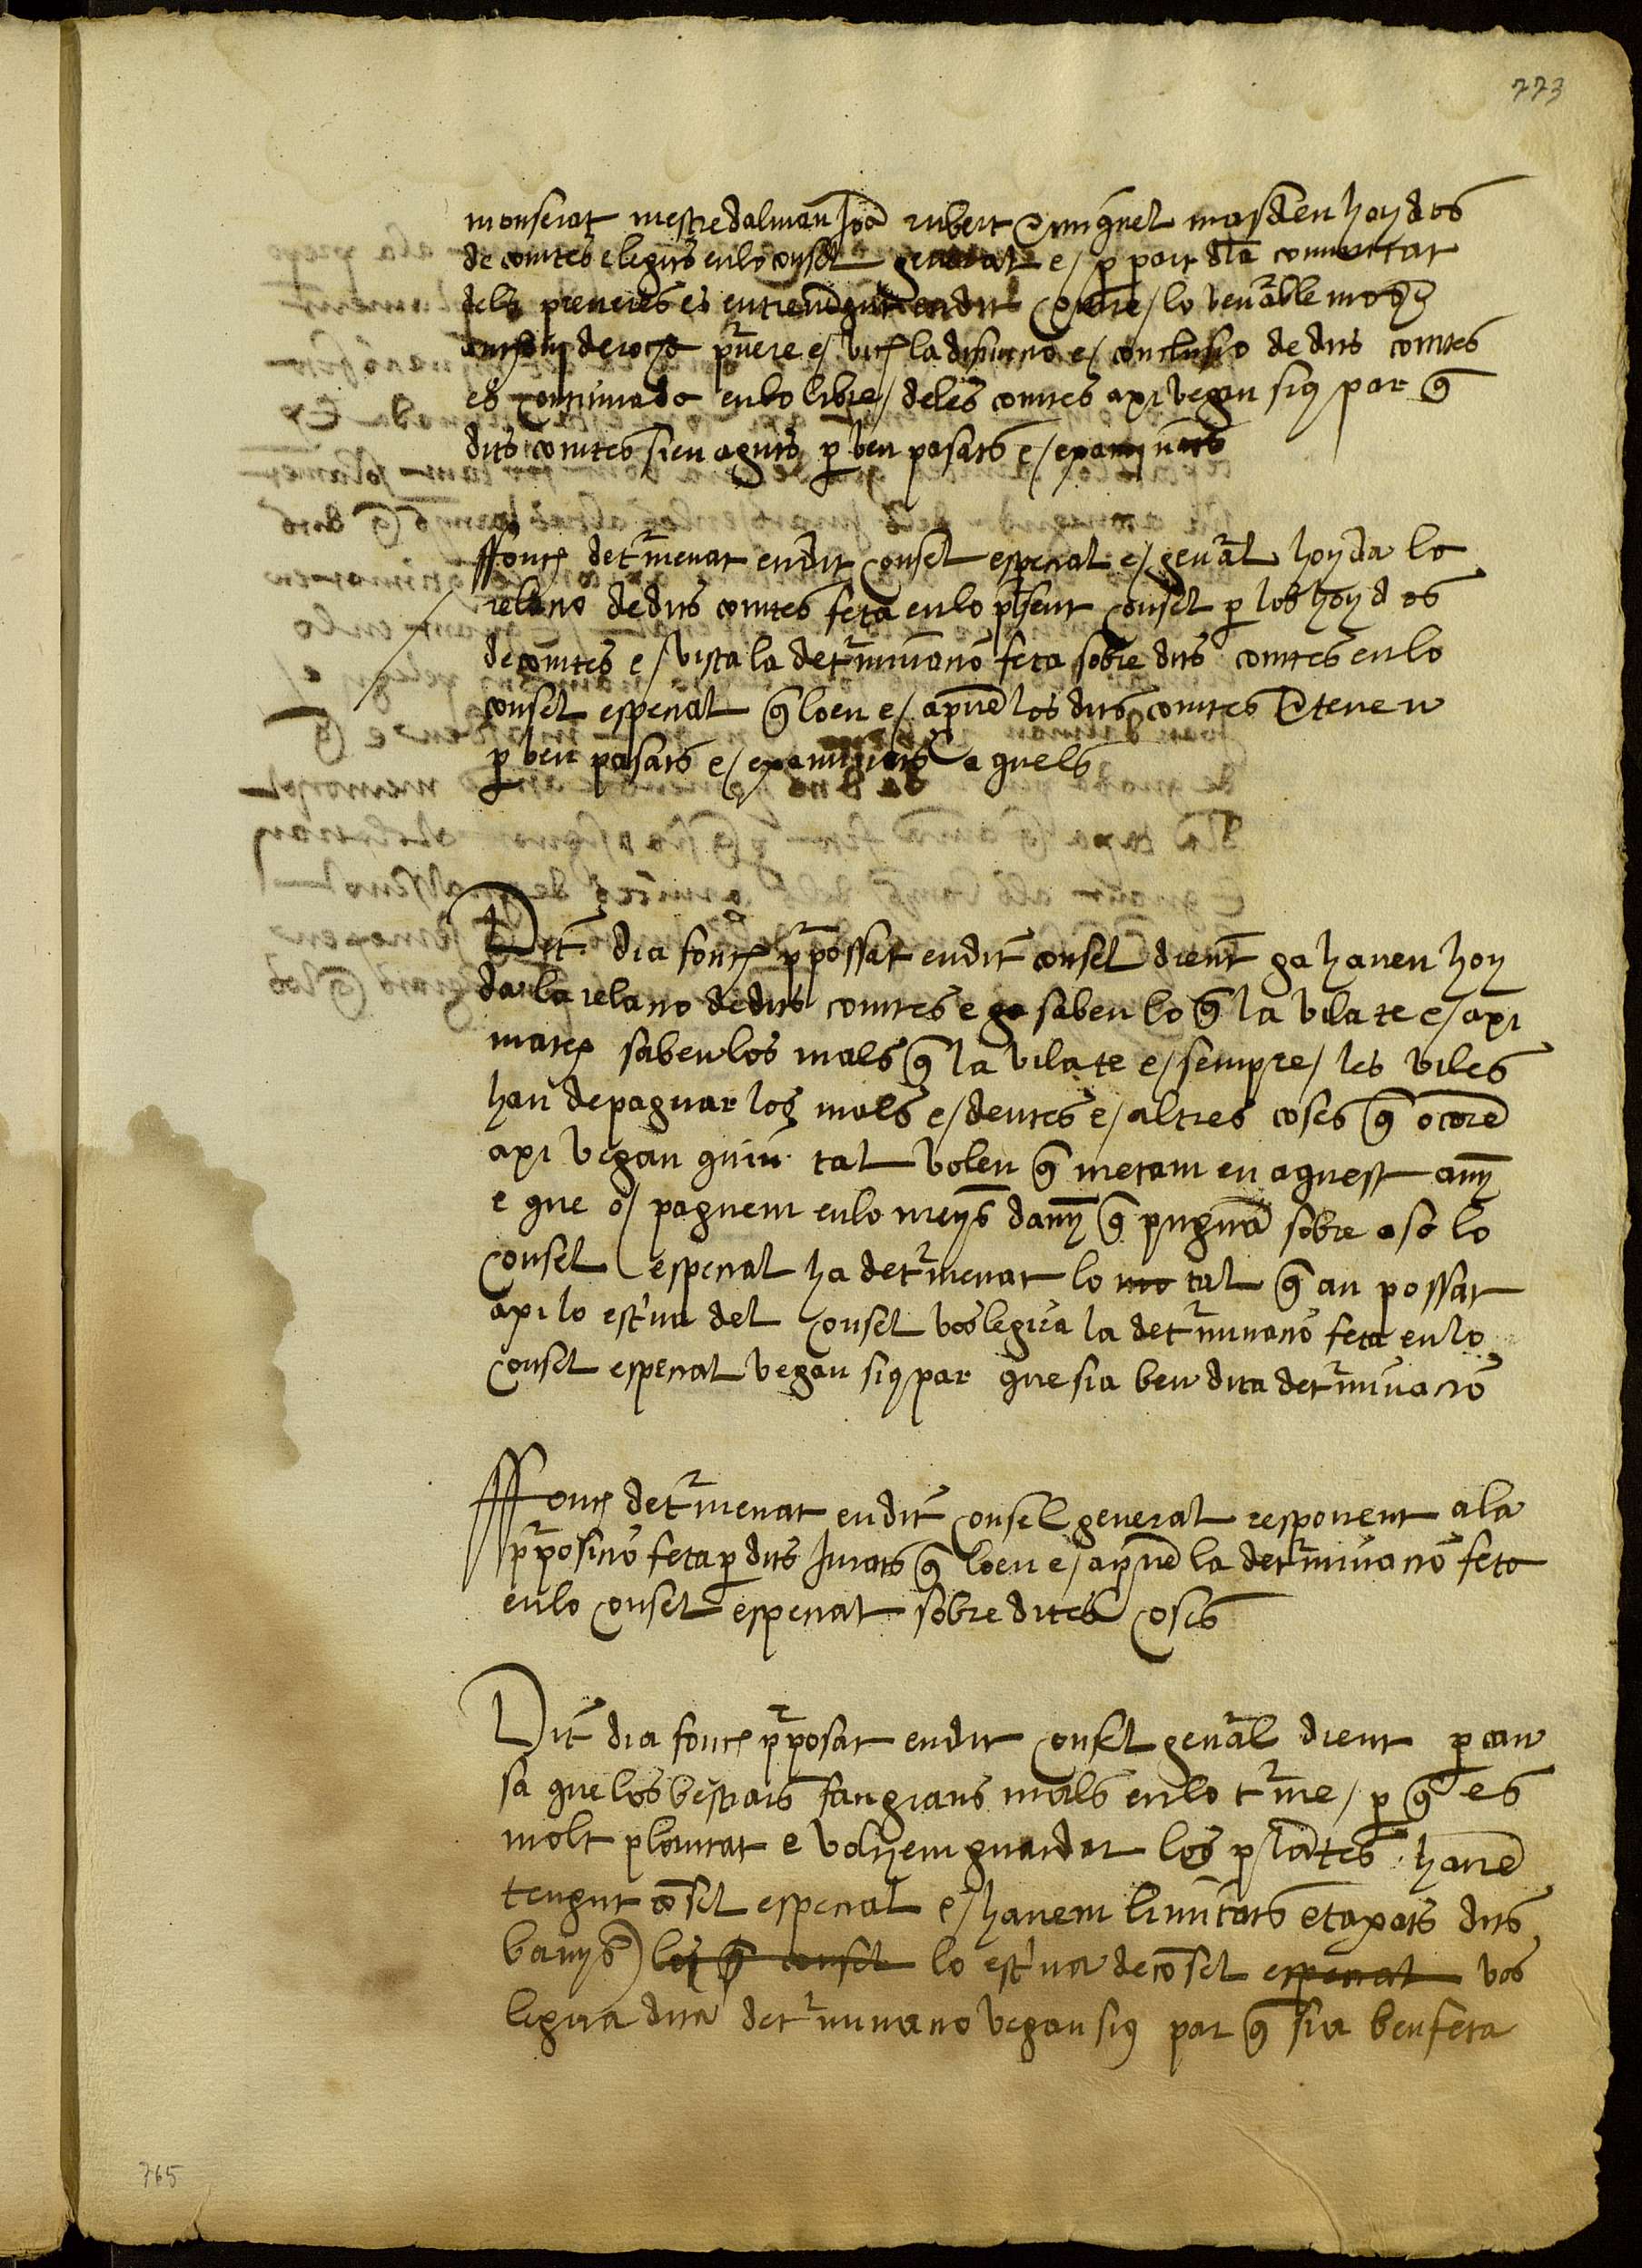 773
monserat mestre dalmau Joā rubert e miquel masdeu hoydos
de comtes elegits en lo consel general e / p part dla comunitat
dels preveres es entrevēgut en dits comtes / lo venāble moss
antoni de roca pvere e / vist la difinicio e / conclusio de dits comtes
es continuada en lo libre / deles comtes axi vegau sius par q̄
dits comtes sien aguts p ben pasats e / examinats
ffonch detrmenat en dit consel especial e / genāl hoyda la
relacio de dits comtes feta en lo psent consel p los hoydos
de comtes e / vista la detrminacio feta sobre dits comtes en lo
consel especial q̄ loen e / apvē los dits comtes e tenen
p ben pasats e / examinats aquels
Dit dia fonch ppossat en dit consel dient ga haveu hoy
da la relacio de dits comtes e ga sabeu lo q̄ la vila te e / axi
matex sabeu los mals q̄ la vila te e / sempre / les viles
han de paguar los mals e / deutes e / altres coses q̄ ocorē
axi vegau quin tal volen q̄ metam en aquest any
e que o / paguem en lo meys dany q̄ puguā sobre aso lo
consel especial ha detrmenat lo mo tal q̄ an possat
axi lo escriva del consel vos legira la detrminacio feta en lo
consel especial vegau sius par que sia ben dita detrminacio
ffonch detrmenat en dit consel general responent a la
pposicio feta p dits Jurats q̄ loen e / apvē la detrminacio feta
en lo consel especial sobre dites coses
Dit dia fonch pposat en dit consel genāl dient p cau
sa que los bestiars fan grans mals en lo trme / p q̄ es
molt plantat e volyem guardar los plātes havē
tengut cōsel especial e / havem limitats e taxats dits
banys los q̄ consel lo escriva de cōsel especial vos
legira dita detrminacio vegau sius par q̄ sia ben feta
765